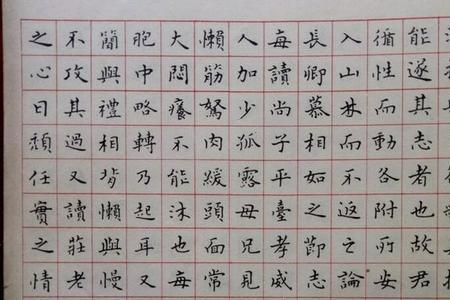 能遂其志者也故君
循性而動各附所安
入山林而不返之論
長卿慕相如之節志
每讀尚子平臺孝威
人加少孤露母兄見
懶筋駑肉緩頭面常
大悶癢不能沐也每
胞中略轉乃起耳又
簡與禮相背懶與慢
不攻其過又讀莊老
之心日頹任實之情